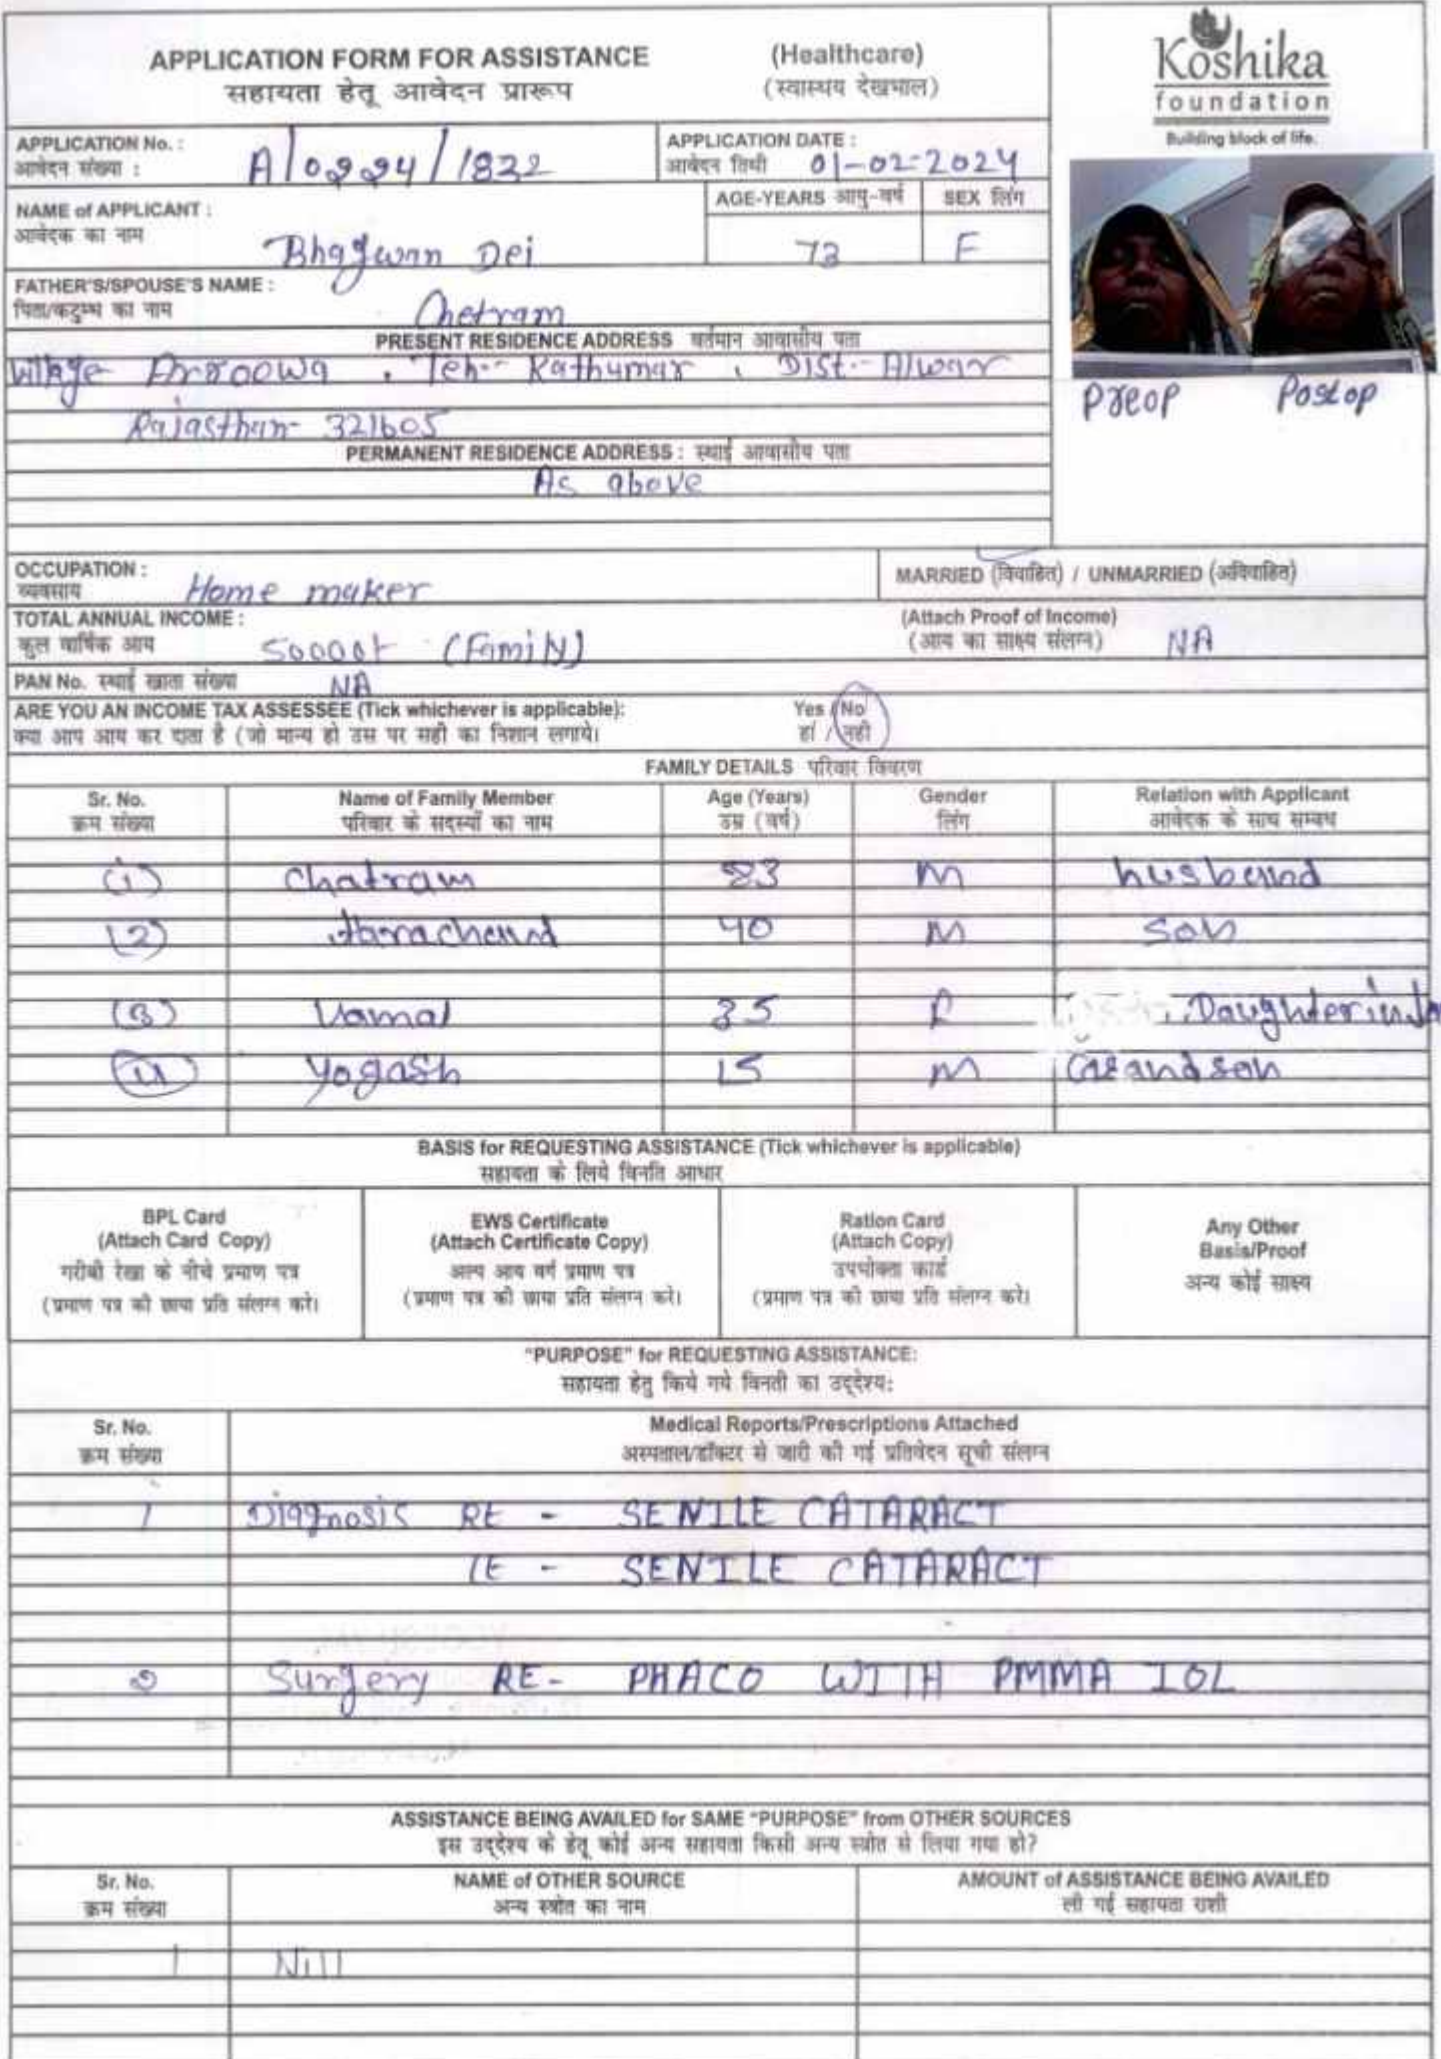 APPLICATION FORM FOR ASSISTANCE (Healthcare)
सहायता हेतू आवेदन प्रारूप (स्वास्थय देखभाल)
Koshika
foundation
Building block of life.
APPLICATION No. :
आवेदन संख्या : A/0224/1832
APPLICATION DATE :
आवेदन तिथी 01-02-2024
NAME of APPLICANT :
आवेदक का नाम Bhagwan Dei
AGE-YEARS आयु-वर्ष SEX लिंग
72 F
FATHER'S/SPOUSE'S NAME :
पिता/कटुम्भ का नाम Chetram
PRESENT RESIDENCE ADDRESS वर्तमान आवासीय पता
Village , Teh.- Kathumar , Dist.- Alwar
Rajasthan- 321605
Preop Postop
PERMANENT RESIDENCE ADDRESS : स्थाई आवासीय पता
As above
OCCUPATION :
व्यवसाय Home maker
MARRIED (विवाहित) / UNMARRIED (अविवाहित)
TOTAL ANNUAL INCOME :
कुल वार्षिक आय (Family)
(Attach Proof of Income)
(आय का साक्ष्य संलग्न) NA
PAN No. स्थाई खाता संख्या NA
ARE YOU AN INCOME TAX ASSESSEE (Tick whichever is applicable): Yes / No
क्या आप आय कर दाता है (जो मान्य हो उस पर सही का निशान लगाये। हां / नही
FAMILY DETAILS परिवार विवरण
Sr. No. Name of Family Member Age (Years) Gender Relation with Applicant
क्रम संख्या परिवार के सदस्यों का नाम उम्र (वर्ष) लिंग आवेदक के साथ सम्बध
(1) Chatram M husbend
(2) 40 M Son
(3) 35 F Daughter in la
(4) Yogash 15 M Grandson
BASIS for REQUESTING ASSISTANCE (Tick whichever is applicable)
सहायता के लिये विनति आधार
BPL Card
(Attach Card Copy)
गरीबी रेखा के नीचे प्रमाण पत्र
(प्रमाण पत्र की छाया प्रति संलग्न करे।
EWS Certificate
(Attach Certificate Copy)
अल्प आय वर्ग प्रमाण पत्र
(प्रमाण पत्र की छाया प्रति संलग्न करे।
Ration Card
(Attach Copy)
उपभोक्ता कार्ड
(प्रमाण पत्र की छाया प्रति संलग्न करे।
Any Other
Basis/Proof
अन्य कोई साक्ष्य
"PURPOSE" for REQUESTING ASSISTANCE:
सहायता हेतु किये गये विनती का उद्देश्य:
Sr. No. Medical Reports/Prescriptions Attached
क्रम संख्या अस्पताल/डॉक्टर से जारी की गई प्रतिवेदन सूची संलग्न
1 Diagnosis RE - SENILE CATARACT
LE - SENILE CATARACT
2 Surgery RE- PHACO WITH PMMA IOL
ASSISTANCE BEING AVAILED for SAME "PURPOSE" from OTHER SOURCES
इस उद्देश्य के हेतू कोई अन्य सहायता किसी अन्य स्त्रोत से लिया गया हो?
Sr. No. NAME of OTHER SOURCE AMOUNT of ASSISTANCE BEING AVAILED
क्रम संख्या अन्य स्त्रोत का नाम ली गई सहायता राशी
1 Nill